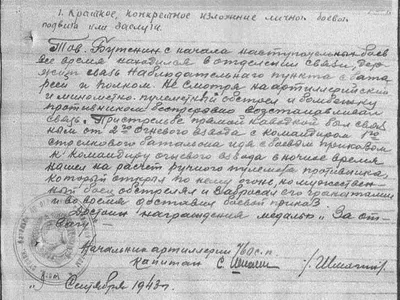 1. Краткое, конкретное изложение личного боевого
подвига или заслуги.
Тов. Бутенин с начала наступательных боев
все время находился в отделении связи, дер-
жит связь наблюдательного пункта с бата-
реей и полком. Не смотря на артиллерийский
и минометно-пулеметный обстрел и бомбежку
противником беспрерывно восстанавливал
связь. При стрельбе прямой наводкой был связ-
ным от 2го огневого взвода с командиром 1го
стрелкового баталиона идя с боевым приказом
к командиру огневого взвода в ночное время
нашел на расчет ручного пулемета противника
который открыл по нему огонь, но мужествен-
ный боец обстрелял и забросал его гранатами
и во время доставил боевой приказ
Достоин награждения медалью "За от-
вагу"
Начальник артиллерии 460 с.п.
капитан
Сентября 1943 г.